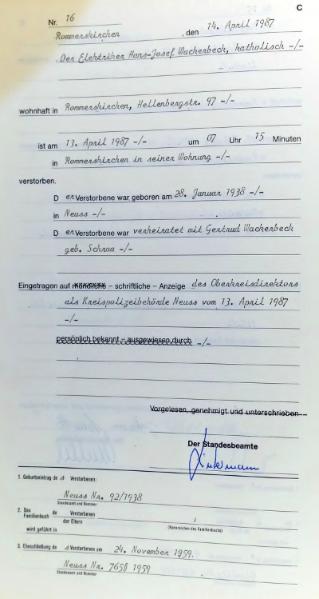 C
Nr. 16
Rommerskirchen, den 14. April 1987
Der Elektriker Hans-Josef Wachenbeck, katholisch -/-
wohnhaft in Rommerskirchen, Hellenbergstr. 97 -/-
ist am 13. April 1987 -/- um 07 Uhr 15 Minuten
in Rommerskirchen in seiner Wohnung -/-
verstorben.
D er Verstorbene war geboren am 28. Januar 1938 -/-
in Neuss -/-
D er Verstorbene war verheiratet mit Gertrud Wachenbeck
geb. Schroa -/-
Eingetragen auf mündliche – schriftliche – Anzeige des Oberkreisdirektors
als Kreispolizeibehörde Neuss vom 13. April 1987
-/-
persönlich bekannt – ausgewiesen durch -/-
Vorgelesen, genehmigt und unterschrieben
Der Standesbeamte
1. Geburtseintrag de s Verstorbenen
Neuss Nr. 92/1938
Standesamt und Nummer
2. Das Familienbuch de Verstorbenen
der Eltern
wird geführt in
(Namenszeichen des Familienbuchs)
3. Eheschließung de s Verstorbenen am 24. November 1959.
Neuss Nr. 7658 1959
Standesamt und Nummer